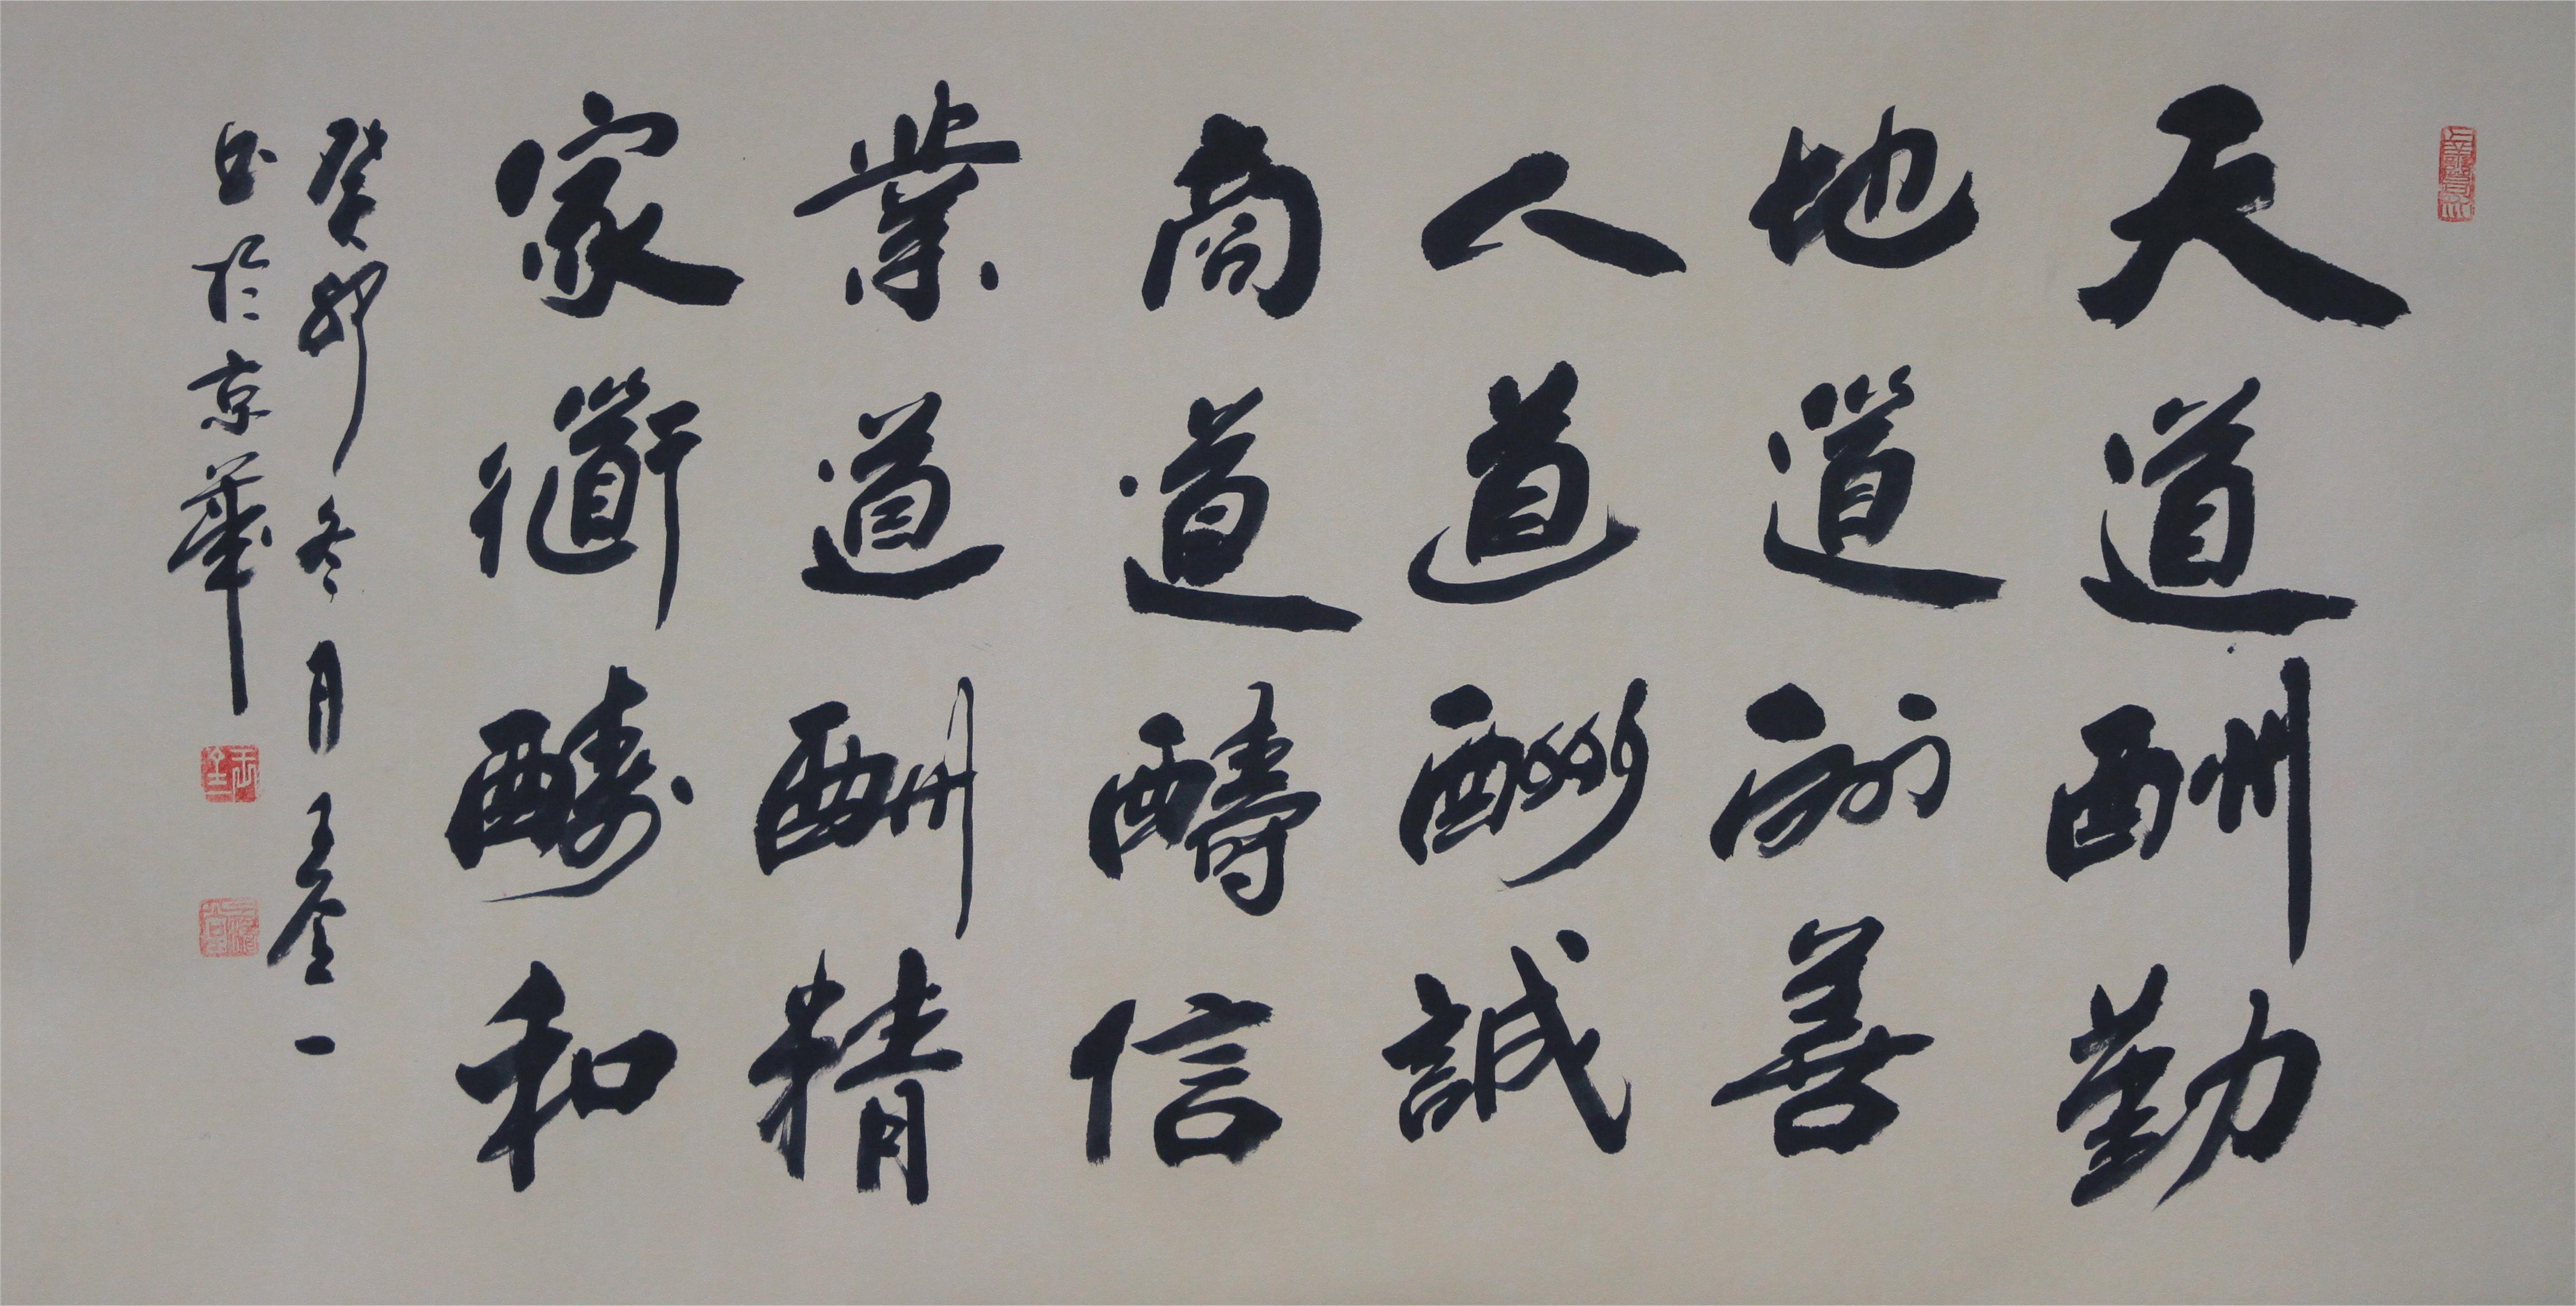 天道酬勤
地道酬善
人道酬誠
商道醻信
業道酬精
家衟醻和
癸卯冬月王金一
書於京華